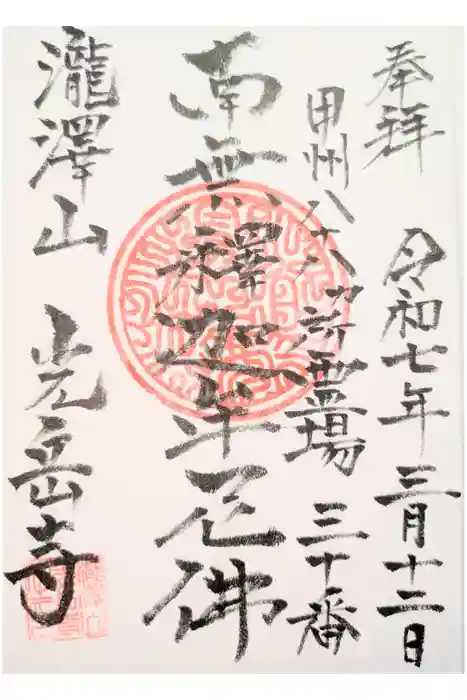 奉拝
令和七年三月十二日
甲州八十八ヶ所霊場三十番
南無釋迦牟尼佛
瀧澤山 光岳寺